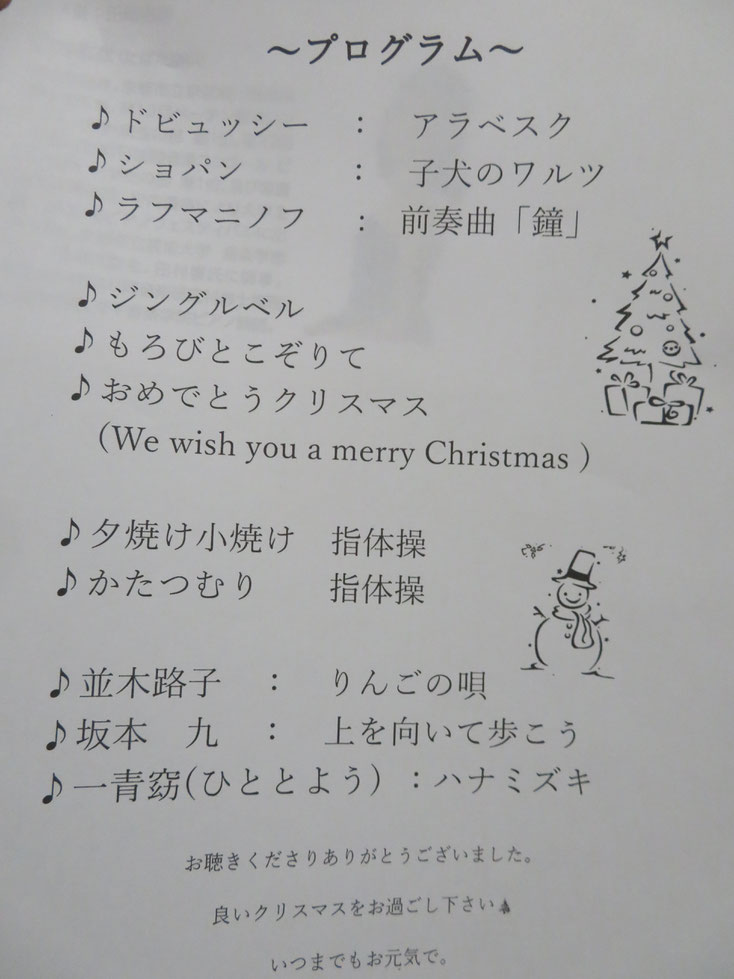 ～プログラム～
♪ドビュッシー　：　アラベスク
♪ショパン　　　：　子犬のワルツ
♪ラフマニノフ　：　前奏曲「鐘」
♪ジングルベル
♪もろびとこぞりて
♪おめでとうクリスマス
（We wish you a merry Christmas ）
♪夕焼け小焼け　指体操
♪かたつむり　　指体操
♪並木路子　：　りんごの唄
♪坂本　九　：　上を向いて歩こう
♪一青窈(ひととよう) ：ハナミズキ
お聴きくださりありがとうございました。
良いクリスマスをお過ごし下さい
いつまでもお元気で。